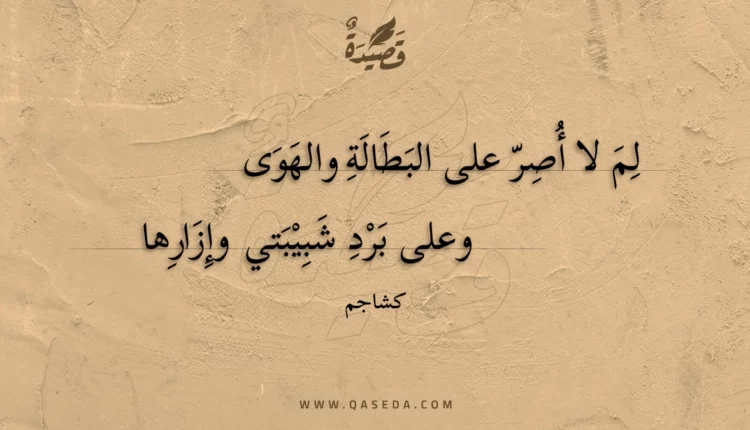 قَصِيْدَةٌ
لِمَ لا أُصِرّ على البَطَالَةِ والهَوَى
وعلى بَرْدِ شَبِيْبَتي وإِزَارِها
كشاجم
WWW.QASEDA.COM